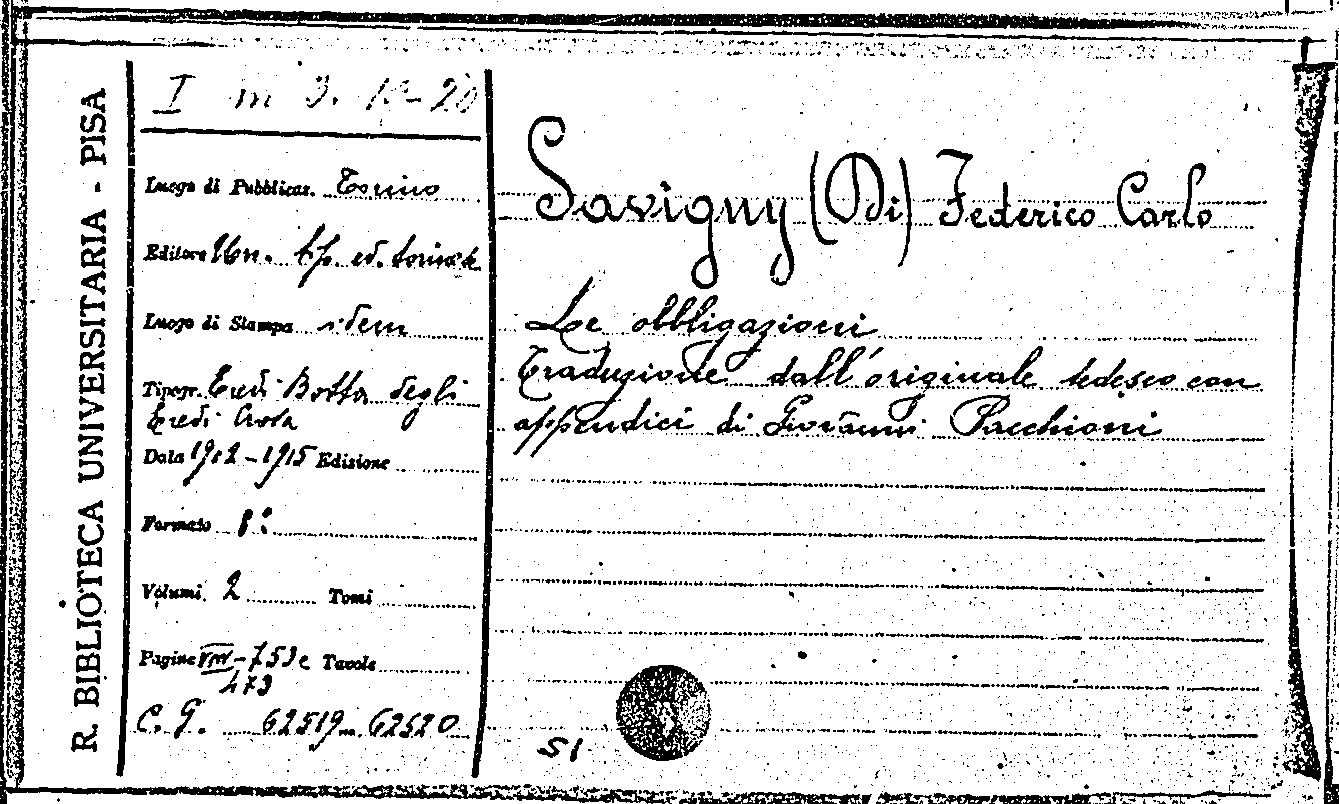 R. BIBLIOTECA UNIVERSITARIA - PISA
I m 3. 19-20
Luogo di Pubblicaz. Torino
Editore Un. tip. ed. torinese
Luogo di Stampa idem
Tipogr. Eredi Botta degli
Eredi
Data 1912-1915 Edizione
Formato 8º
Volumi 2 Tomi
Pagine VIII-753 e Tavole
473
C. G. 62519-62520
Savigny (Di) Federico Carlo
Le obbligazioni
Traduzione dall'originale tedesco con
appendici di Giovanni Pacchioni
51